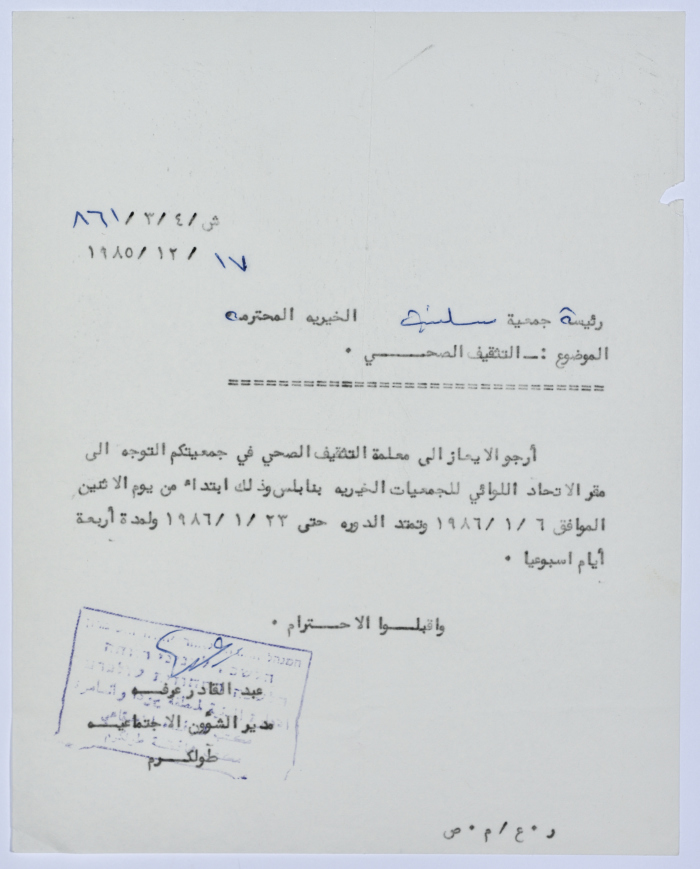 ش/٤/٣/٨٦١
١٧/١٢/١٩٨٥
رئيسة جمعية الخيريه المحترمه
الموضوع :ـ التثقيف الصحـــي ٠
==================================
أرجو الايعاز الى معلمة التثقيف الصحي في جمعيتكم التوجه الى
مقر الاتحاد اللوائي للجمعيات الخيريه بنابلس وذلك ابتداء من يوم الاثنين
الموافق ١٩٨٦/١/٦ وتمتد الدوره حتى ١٩٨٦/١/٢٣ ولمدة أربعة
أيام اسبوعيا ٠
واقبلــوا الاحــترام ٠
عبد القادر عرفــه
مدير الشؤون الاجتماعيــه
طولكــرم
ر٠ع/م٠ص